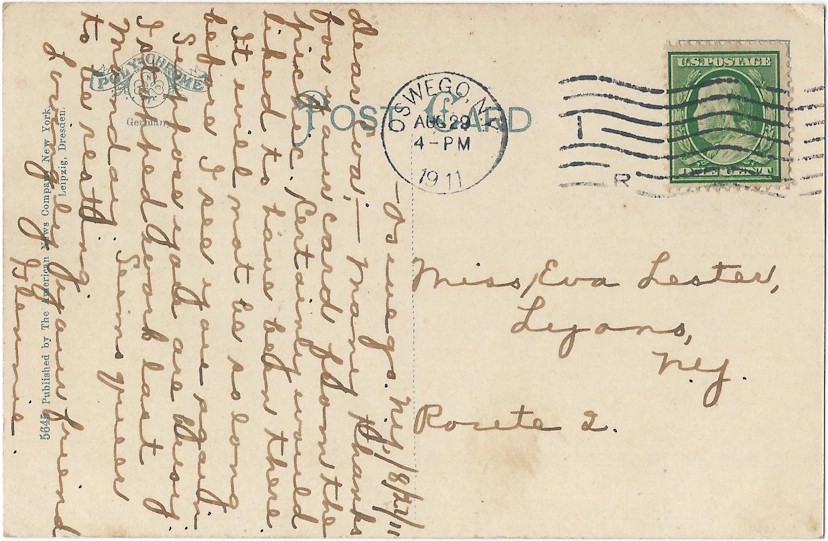 POST CARD
POLY-CHROME
German
5645 Published by The American News Company, New York
Leipzig, Dresden.
OSWEGO, N.Y.
AUG 29
4-PM
1911
1
R
U.S. POSTAGE
ONE CENT
Oswego. N.Y. 8/29/11
Dear Eva; - Many thanks
for your card from the
picnic. Certainly would
liked to have been there
It will not be so long
before I see you again.
Suppose you are busy.
I stopped work last
Monday. Seems queer
to be resting.
Lovingly your friend
Miss Eva Lester,
Lyons,
N.Y.
Route 2.